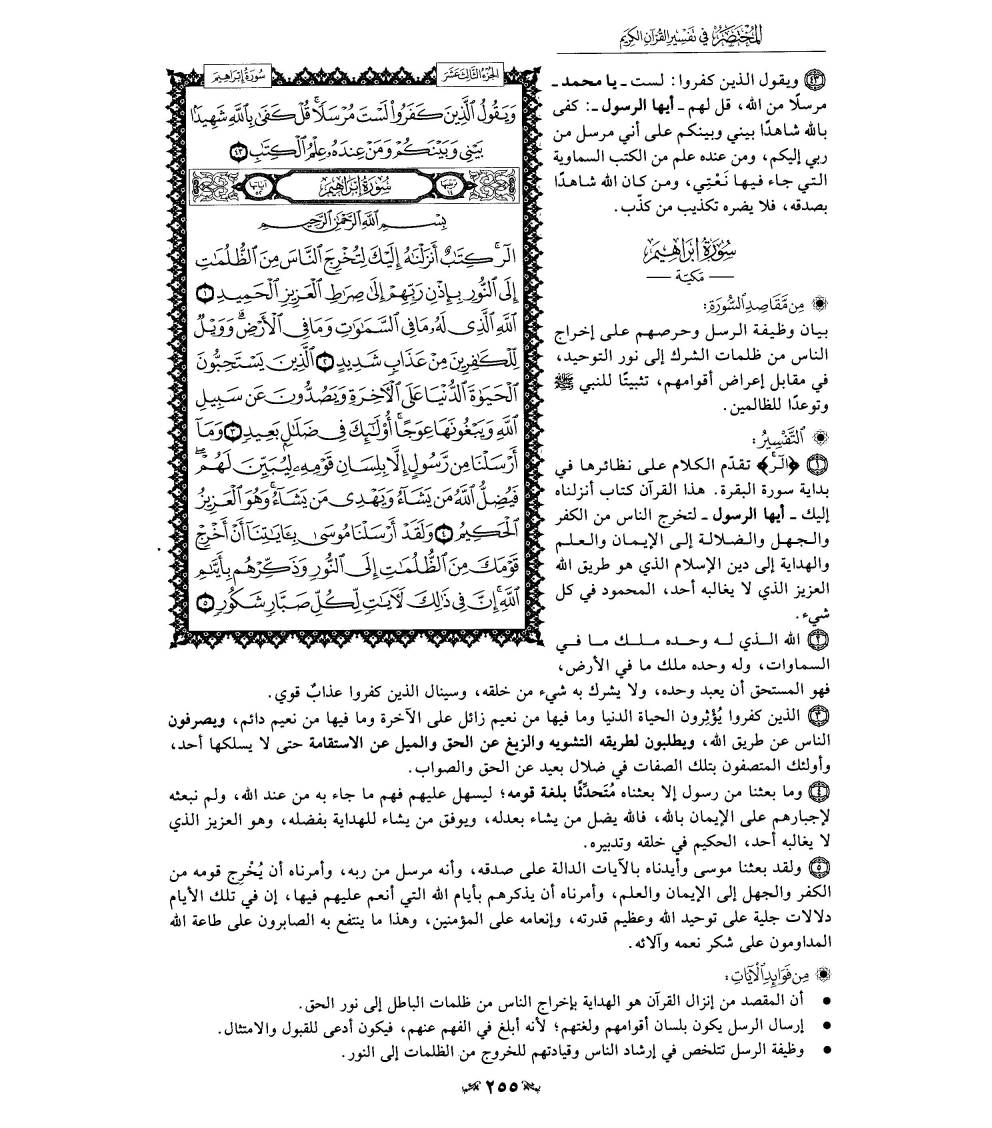 المختصر في تفسير القرآن الكريم
سورة إبراهيم
الجزء الثالث عشر
وَيَقُولُ ٱلَّذِينَ كَفَرُوا۟ لَسْتَ مُرْسَلًا ۚ قُلْ كَفَىٰ بِٱللَّهِ شَهِيدًۢا
بَيْنِى وَبَيْنَكُمْ وَمَنْ عِندَهُۥ عِلْمُ ٱلْكِتَٰبِ ٤٣
سُورَةُ إِبْرَاهِيمَ
بِسْمِ ٱللَّهِ ٱلرَّحْمَٰنِ ٱلرَّحِيمِ
الٓر ۚ كِتَٰبٌ أَنزَلْنَٰهُ إِلَيْكَ لِتُخْرِجَ ٱلنَّاسَ مِنَ ٱلظُّلُمَٰتِ
إِلَى ٱلنُّورِ بِإِذْنِ رَبِّهِمْ إِلَىٰ صِرَٰطِ ٱلْعَزِيزِ ٱلْحَمِيدِ ١
ٱللَّهِ ٱلَّذِى لَهُۥ مَا فِى ٱلسَّمَٰوَٰتِ وَمَا فِى ٱلْأَرْضِ ۗ وَوَيْلٌ
لِّلْكَٰفِرِينَ مِنْ عَذَابٍ شَدِيدٍ ٢ ٱلَّذِينَ يَسْتَحِبُّونَ
ٱلْحَيَوٰةَ ٱلدُّنْيَا عَلَى ٱلْءَاخِرَةِ وَيَصُدُّونَ عَن سَبِيلِ
ٱللَّهِ وَيَبْغُونَهَا عِوَجًا ۚ أُو۟لَٰٓئِكَ فِى ضَلَٰلٍۭ بَعِيدٍ ٣ وَمَآ
أَرْسَلْنَا مِن رَّسُولٍ إِلَّا بِلِسَانِ قَوْمِهِۦ لِيُبَيِّنَ لَهُمْ ۖ
فَيُضِلُّ ٱللَّهُ مَن يَشَآءُ وَيَهْدِى مَن يَشَآءُ ۚ وَهُوَ ٱلْعَزِيزُ
ٱلْحَكِيمُ ٤ وَلَقَدْ أَرْسَلْنَا مُوسَىٰ بِـَٔايَٰتِنَآ أَنْ أَخْرِجْ
قَوْمَكَ مِنَ ٱلظُّلُمَٰتِ إِلَى ٱلنُّورِ وَذَكِّرْهُم بِأَيَّىٰمِ
ٱللَّهِ ۚ إِنَّ فِى ذَٰلِكَ لَءَايَٰتٍ لِّكُلِّ صَبَّارٍ شَكُورٍ ٥
٤٣ ويقول الذين كفروا: لست ـ يا محمد ـ
مرسلًا من الله، قل لهم ـ أيها الرسول ـ: كفى
بالله شاهدًا بيني وبينكم على أني مرسل من
ربي إليكم، ومن عنده علم من الكتب السماوية
التي جاء فيها نَعْتِي، ومن كان الله شاهدًا
بصدقه، فلا يضره تكذيب من كذّب.
سورة إبراهيم
— مكية —
من مقاصد السورة:
بيان وظيفة الرسل وحرصهم على إخراج
الناس من ظلمات الشرك إلى نور التوحيد،
في مقابل إعراض أقوامهم، تثبيتًا للنبي ﷺ
وتوعدًا للظالمين.
التفسير:
١ ﴿الٓر﴾ تقدّم الكلام على نظائرها في
بداية سورة البقرة. هذا القرآن كتاب أنزلناه
إليك ـ أيها الرسول ـ لتخرج الناس من الكفر
والجهل والضلالة إلى الإيمان والعلم
والهداية إلى دين الإسلام الذي هو طريق الله
العزيز الذي لا يغالبه أحد، المحمود في كل
شيء.
٢ الله الذي له وحده ملك ما في
السماوات، وله وحده ملك ما في الأرض،
فهو المستحق أن يعبد وحده، ولا يشرك به شيء من خلقه، وسينال الذين كفروا عذابٌ قوي.
٣ الذين كفروا يُؤْثِرون الحياة الدنيا وما فيها من نعيم زائل على الآخرة وما فيها من نعيم دائم، ويصرفون
الناس عن طريق الله، ويطلبون لطريقه التشويه والزيغ عن الحق والميل عن الاستقامة حتى لا يسلكها أحد،
وأولئك المتصفون بتلك الصفات في ضلال بعيد عن الحق والصواب.
٤ وما بعثنا من رسول إلا بعثناه مُتَحدِّثًا بلغة قومه؛ ليسهل عليهم فهم ما جاء به من عند الله، ولم نبعثه
لإجبارهم على الإيمان بالله، فالله يضل من يشاء بعدله، ويوفق من يشاء للهداية بفضله، وهو العزيز الذي
لا يغالبه أحد، الحكيم في خلقه وتدبيره.
٥ ولقد بعثنا موسى وأيدناه بالآيات الدالة على صدقه، وأنه مرسل من ربه، وأمرناه أن يُخْرِج قومه من
الكفر والجهل إلى الإيمان والعلم، وأمرناه أن يذكرهم بأيام الله التي أنعم عليهم فيها، إن في تلك الأيام
دلالات جلية على توحيد الله وعظيم قدرته، وإنعامه على المؤمنين، وهذا ما ينتفع به الصابرون على طاعة الله
المداومون على شكر نعمه وآلائه.
من فوائد الآيات:
• أن المقصد من إنزال القرآن هو الهداية بإخراج الناس من ظلمات الباطل إلى نور الحق.
• إرسال الرسل يكون بلسان أقوامهم ولغتهم؛ لأنه أبلغ في الفهم عنهم، فيكون أدعى للقبول والامتثال.
• وظيفة الرسل تتلخص في إرشاد الناس وقيادتهم للخروج من الظلمات إلى النور.
٢٥٥